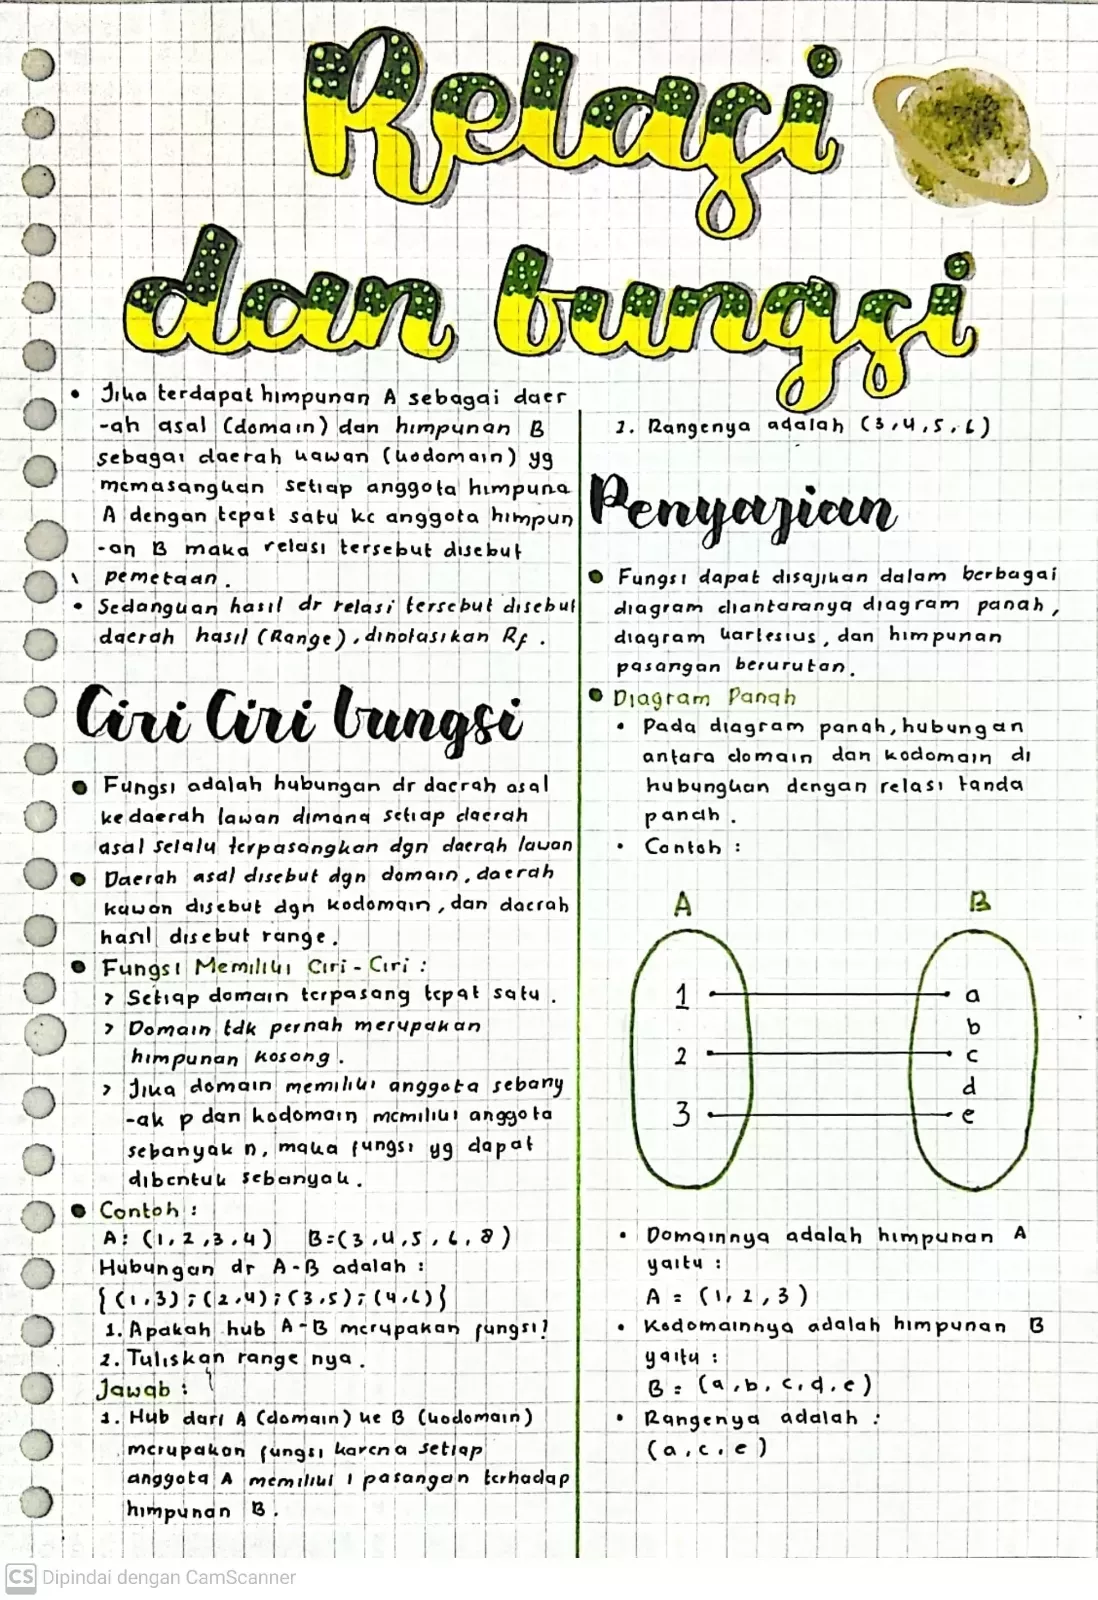 Relasi
dan fungsi
• Jika terdapat himpunan A sebagai daer
-ah asal (domain) dan himpunan B
sebagai daerah kawan (kodomain) yg
memasangkan setiap anggota himpuna
A dengan tepat satu ke anggota himpun
-an B maka relasi tersebut disebut
pemetaan.
• Sedangkan hasil dr relasi tersebut disebut
daerah hasil (Range), dinotasikan Rf.
Ciri Ciri fungsi
• Fungsi adalah hubungan dr daerah asal
ke daerah lawan dimana setiap daerah
asal selalu terpasangkan dgn daerah lawan
• Daerah asal disebut dgn domain, daerah
kawan disebut dgn kodomain, dan daerah
hasil disebut range.
• Fungsi Memiliki Ciri-Ciri :
> Setiap domain terpasang tepat satu.
> Domain tdk pernah merupakan
himpunan kosong.
> Jika domain memiliki anggota sebany
-ak p dan kodomain memiliki anggota
sebanyak n, maka fungsi yg dapat
dibentuk sebanyak.
• Contoh :
A: (1,2,3,4) B=(3,4,5,6,8)
Hubungan dr A-B adalah :
{(1,3);(2,4);(3,5);(4,6)}
1. Apakah hub A-B merupakan fungsi?
2. Tuliskan range nya.
Jawab :
1. Hub dari A (domain) ke B (kodomain)
merupakan fungsi karena setiap
anggota A memiliki 1 pasangan terhadap
himpunan B.
2. Rangenya adalah (3,4,5,6)
Penyajian
• Fungsi dapat disajikan dalam berbagai
diagram diantaranya diagram panah,
diagram kartesius, dan himpunan
pasangan berurutan.
• Diagram Panah
• Pada diagram panah, hubungan
antara domain dan kodomain di
hubungkan dengan relasi tanda
panah.
• Contoh :
A B
1 a
b
2 c
d
3 e
• Domainnya adalah himpunan A
yaitu :
A = (1,2,3)
• Kodomainnya adalah himpunan B
yaitu :
B = (a,b,c,d,e)
• Rangenya adalah :
(a,c,e)
CS Dipindai dengan CamScanner